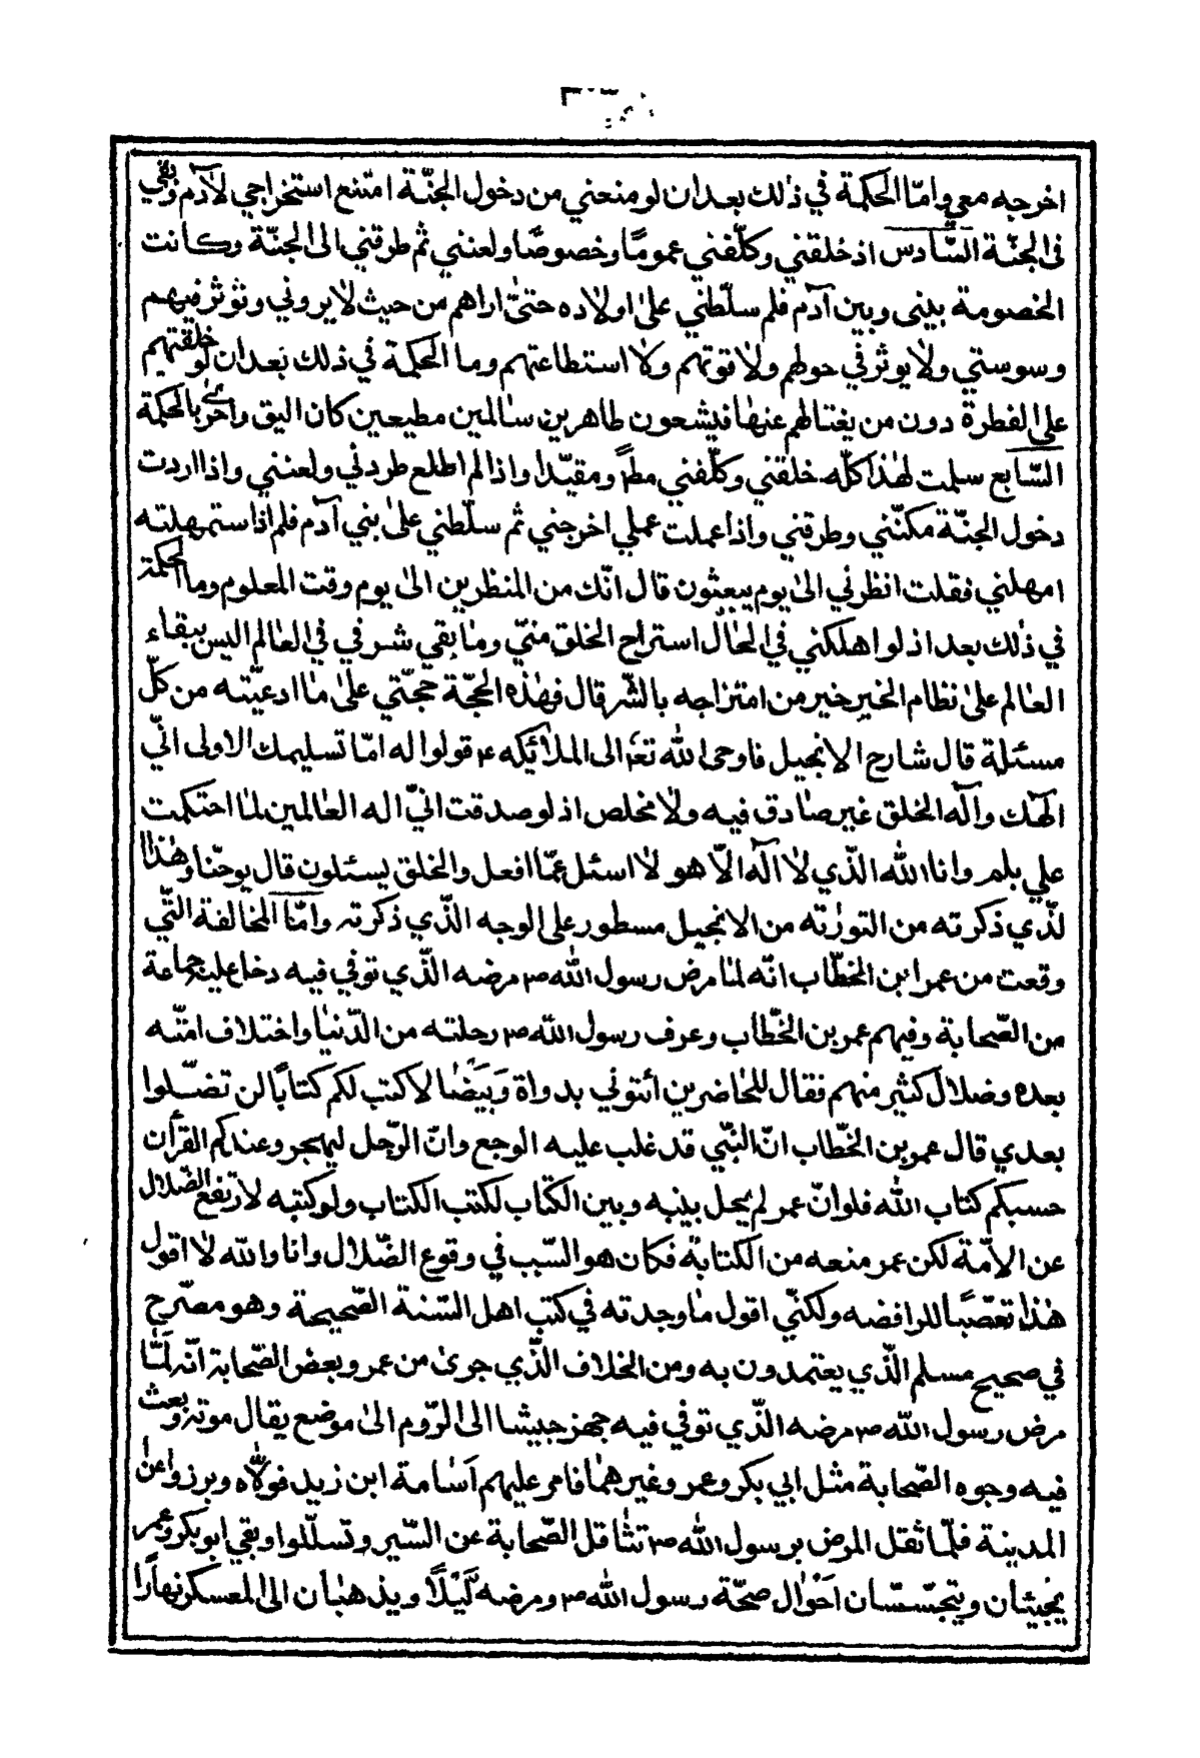 ٣٠٣
اخرجه معي وامّا الحكمة في ذلك بعد ان لو منعني من دخول الجنّة امتنع استخراجي لآدم وبقي
فى الجنّة السّادس اذ خلقني وكلّفني عمومًا وخصوصًا ولعنني ثم طرقني الى الجنّة وكانت
الخصومة بينى وبين آدم فلم سلّطني على اولاده حتىّ اراهم من حيث لا يروني وتوثر فيهم
وسوستي ولا يوثر في حولهم ولا قوتهم ولا استطاعتهم وما الحكمة في ذلك بعد ان لو خلقتهم
على الفطرة دون من يغتالهم عنها فيشعون طاهرين سالمين مطيعين كان اليق واحرى بالحكمة
السّابع سلمت لهذا كلّه خلقني وكلّفني مطلقًا ومقيّدًا واذا لم اطلع طردني ولعنني واذا اردت
دخول الجنّة مكنّني وطرقني واذا عملت عملي اخرجني ثم سلّطني على بني آدم فلم اذا ستمهلته
امهلني فقلت انظرني الى يوم يبعثون قال انّك من المنظرين الى يوم وقت المعلوم وما الحكمة
في ذلك بعد اذ لو اهلكني في الحال استراح الخلق منيّ وما بقي شر في في العالم اليس ببقاء
العالم على نظام الخير خير من امتزاجه بالشّر قال فهذه الحجّة حجّتي على ما ادعيّته من كلّ
مسئلة قال شارح الانجيل فاوحى الله تع الى الملائكه ع قولوا له امّا تسليمك الاولى انّي
الهك وآله الخلق غير صادق فيه ولا مخلص اذ لو صدقت انيّ اله العالمين لما احتكمت
علي بلم وانا الله الذّي لا آله الاّ هو لا اسئل عمّا افعل والخلق يسئلون قال يوحنّا وهذا
لذّي ذكرته من التورٰته من الانجيل مسطور على الوجه الذّي ذكرته وامّا المخالفة التّي
وقعت من عمر ابن الخطّاب انّه لما مرض رسول الله ص مرضه الذّي توفي فيه دخل عليه جماعة
من الصّحابة وفيهم عمر بن الخّطاب وعرف رسول الله ص رحلته من الدّنيا واختلاف امّته
بعده وضلال كثير منهم فقال للحاضرين ائتوني بدواة وبَيضا لاكتب لكم كتابًا لن تضّلوا
بعدي قال عمر بن الخّطاب انّ النبّي قد غلب عليه الوجع وانّ الرّجل ليهجر وعندكم القرآن
حسبكم كتاب الله فلو انّ عمر لم يحل بينه وبين الكتّاب لكتب الكتاب ولو كتبه لارتفع الضّلال
عن الامّة لكن عمر منعه من الكتابة فكان هو السّبب في وقوع الضّلال وانا والله لا اقول
هذا تعصّبًا للرافضه ولكنّي اقول ما وجدته في كتب اهل السّنة الصّحيحة وهو مصّرح
في صحيح مسلم الذّي يعتمدون به ومن الخلاف الذّي جرى من عمر وبعض الصّحابة انّه لمّا
مرض رسول الله ص مرضه الذّي توفي فيه جهز جيشا الى الرّوم الى موضع يقال موته وبعث
فيه وجوه الصّحابة مثل ابي بكر وعمر وغيرهما فامر عليهم اسامة ابن زيد فولّاه وبرزوا عن
المدينة فلمّا ثقل المرض برسول الله ص تثاقل الصّحابة عن السّير وتسلّلوا وبقي ابو بكر وعمر
يجيئان ويتجسّسان احوال صحّة رسول الله ص ومرضه ليلًا ويذهبان الى المعسكر نهارًا